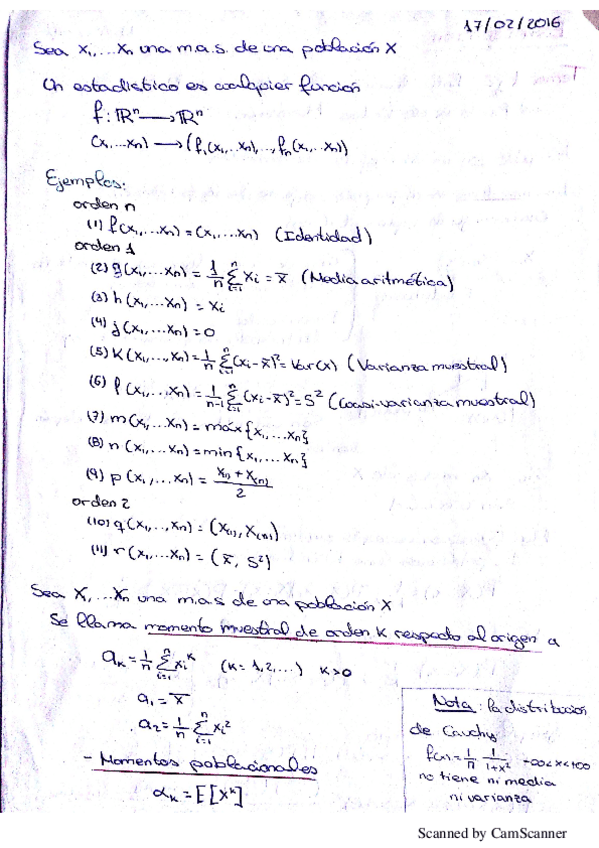 17/02/2016
Sea X₁,...Xn una m.a.s. de una población X
Un estadístico es cualquier función
f: ℝⁿ → ℝⁿ
(x₁,...xn) → (f₁(x₁,..xn),..,fn(x₁,...xn))
Ejemplos:
orden n
(1) f(x₁,...xn) = (x₁,...xn) (Identidad)
orden 1
(2) g(x₁,...xn) = 1/n ∑ᵢ₌₁ⁿ xi = x̄ (Media aritmética)
(3) h(x₁,...xn) = xi
(4) j(x₁,...xn) = 0
(5) K(x₁,...,xn) = 1/n ∑ᵢ₌₁ⁿ (xi-x̄)² = Var(x) (Varianza muestral)
(6) l(x₁,...xn) = 1/n-1 ∑ᵢ₌₁ⁿ (xi-x̄)² = S² (Cuasi-varianza muestral)
(7) m(x₁,...xn) = máx{x₁,...xn}
(8) n(x₁,...xn) = min{x₁,...xn}
(9) p(x₁,...xn) = xn + x(n) / 2
orden 2
(10) q(x₁,...,xn) = (X(1), X(n))
(11) r(x₁,...xn) = (x̄, S²)
Sea X₁,...Xn una m.a.s de una población X
Se llama momento muestral de orden K respecto al origen a
aₖ = 1/n ∑ᵢ₌₁ⁿ xiᵏ (K=1,2,...) K>0
a₁ = x̄
a₂ = 1/n ∑ᵢ₌₁ⁿ xi²
- Momentos poblacionales
αₖ = E[Xᵏ]
Nota: la distribución
de Cauchy
f(x) = 1/π 1/1+x² -∞<x<+∞
no tiene ni media
ni varianza
Scanned by CamScanner